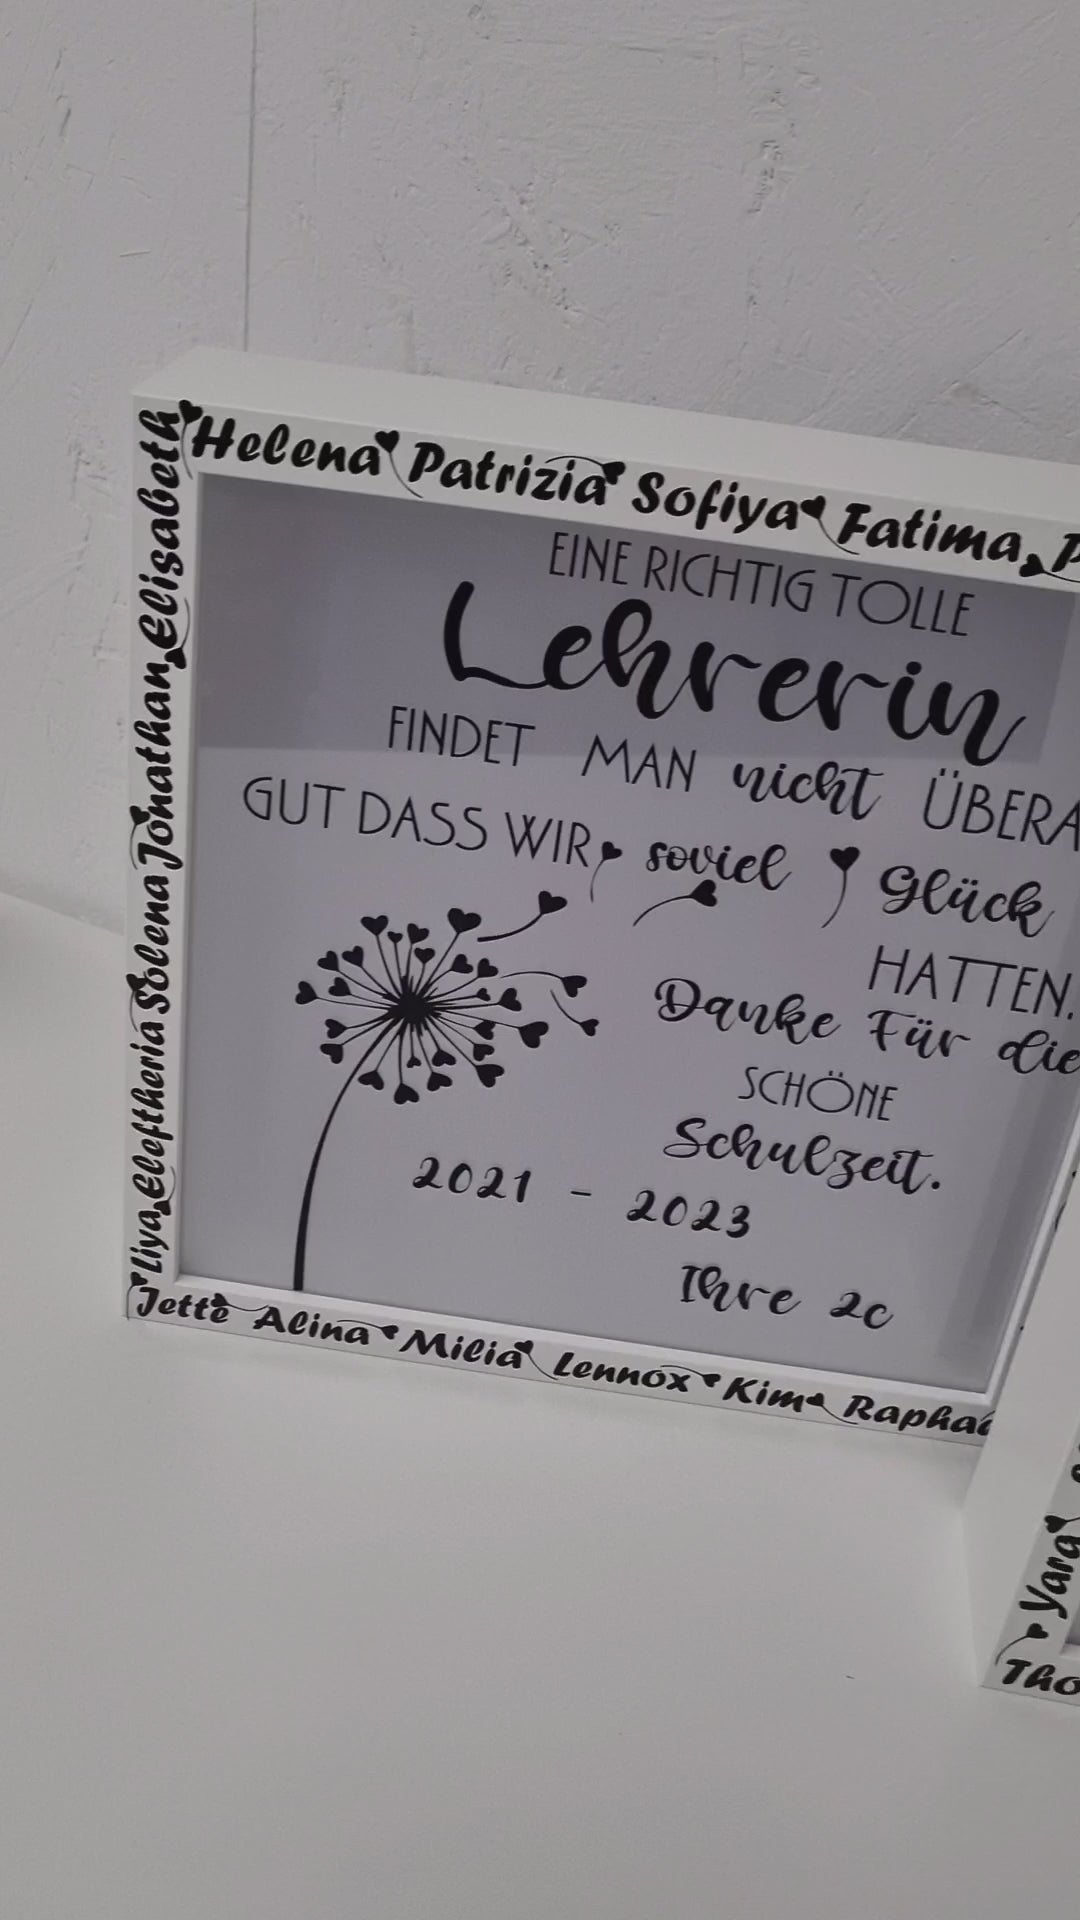 Helena Patrizia Sofiya Fatima
Elisabeth
Jonathan
Solena
Eleftheria
Liya
EINE RICHTIG TOLLE
Lehrerin
FINDET MAN nicht ÜBERA
GUT DASS WIR soviel Glück
HATTEN.
Danke Für die
SCHÖNE
Schulzeit.
2021 - 2023
Ihre 2c
Jette Alina Milia Lennox Kim Raphae
Yara
Tho